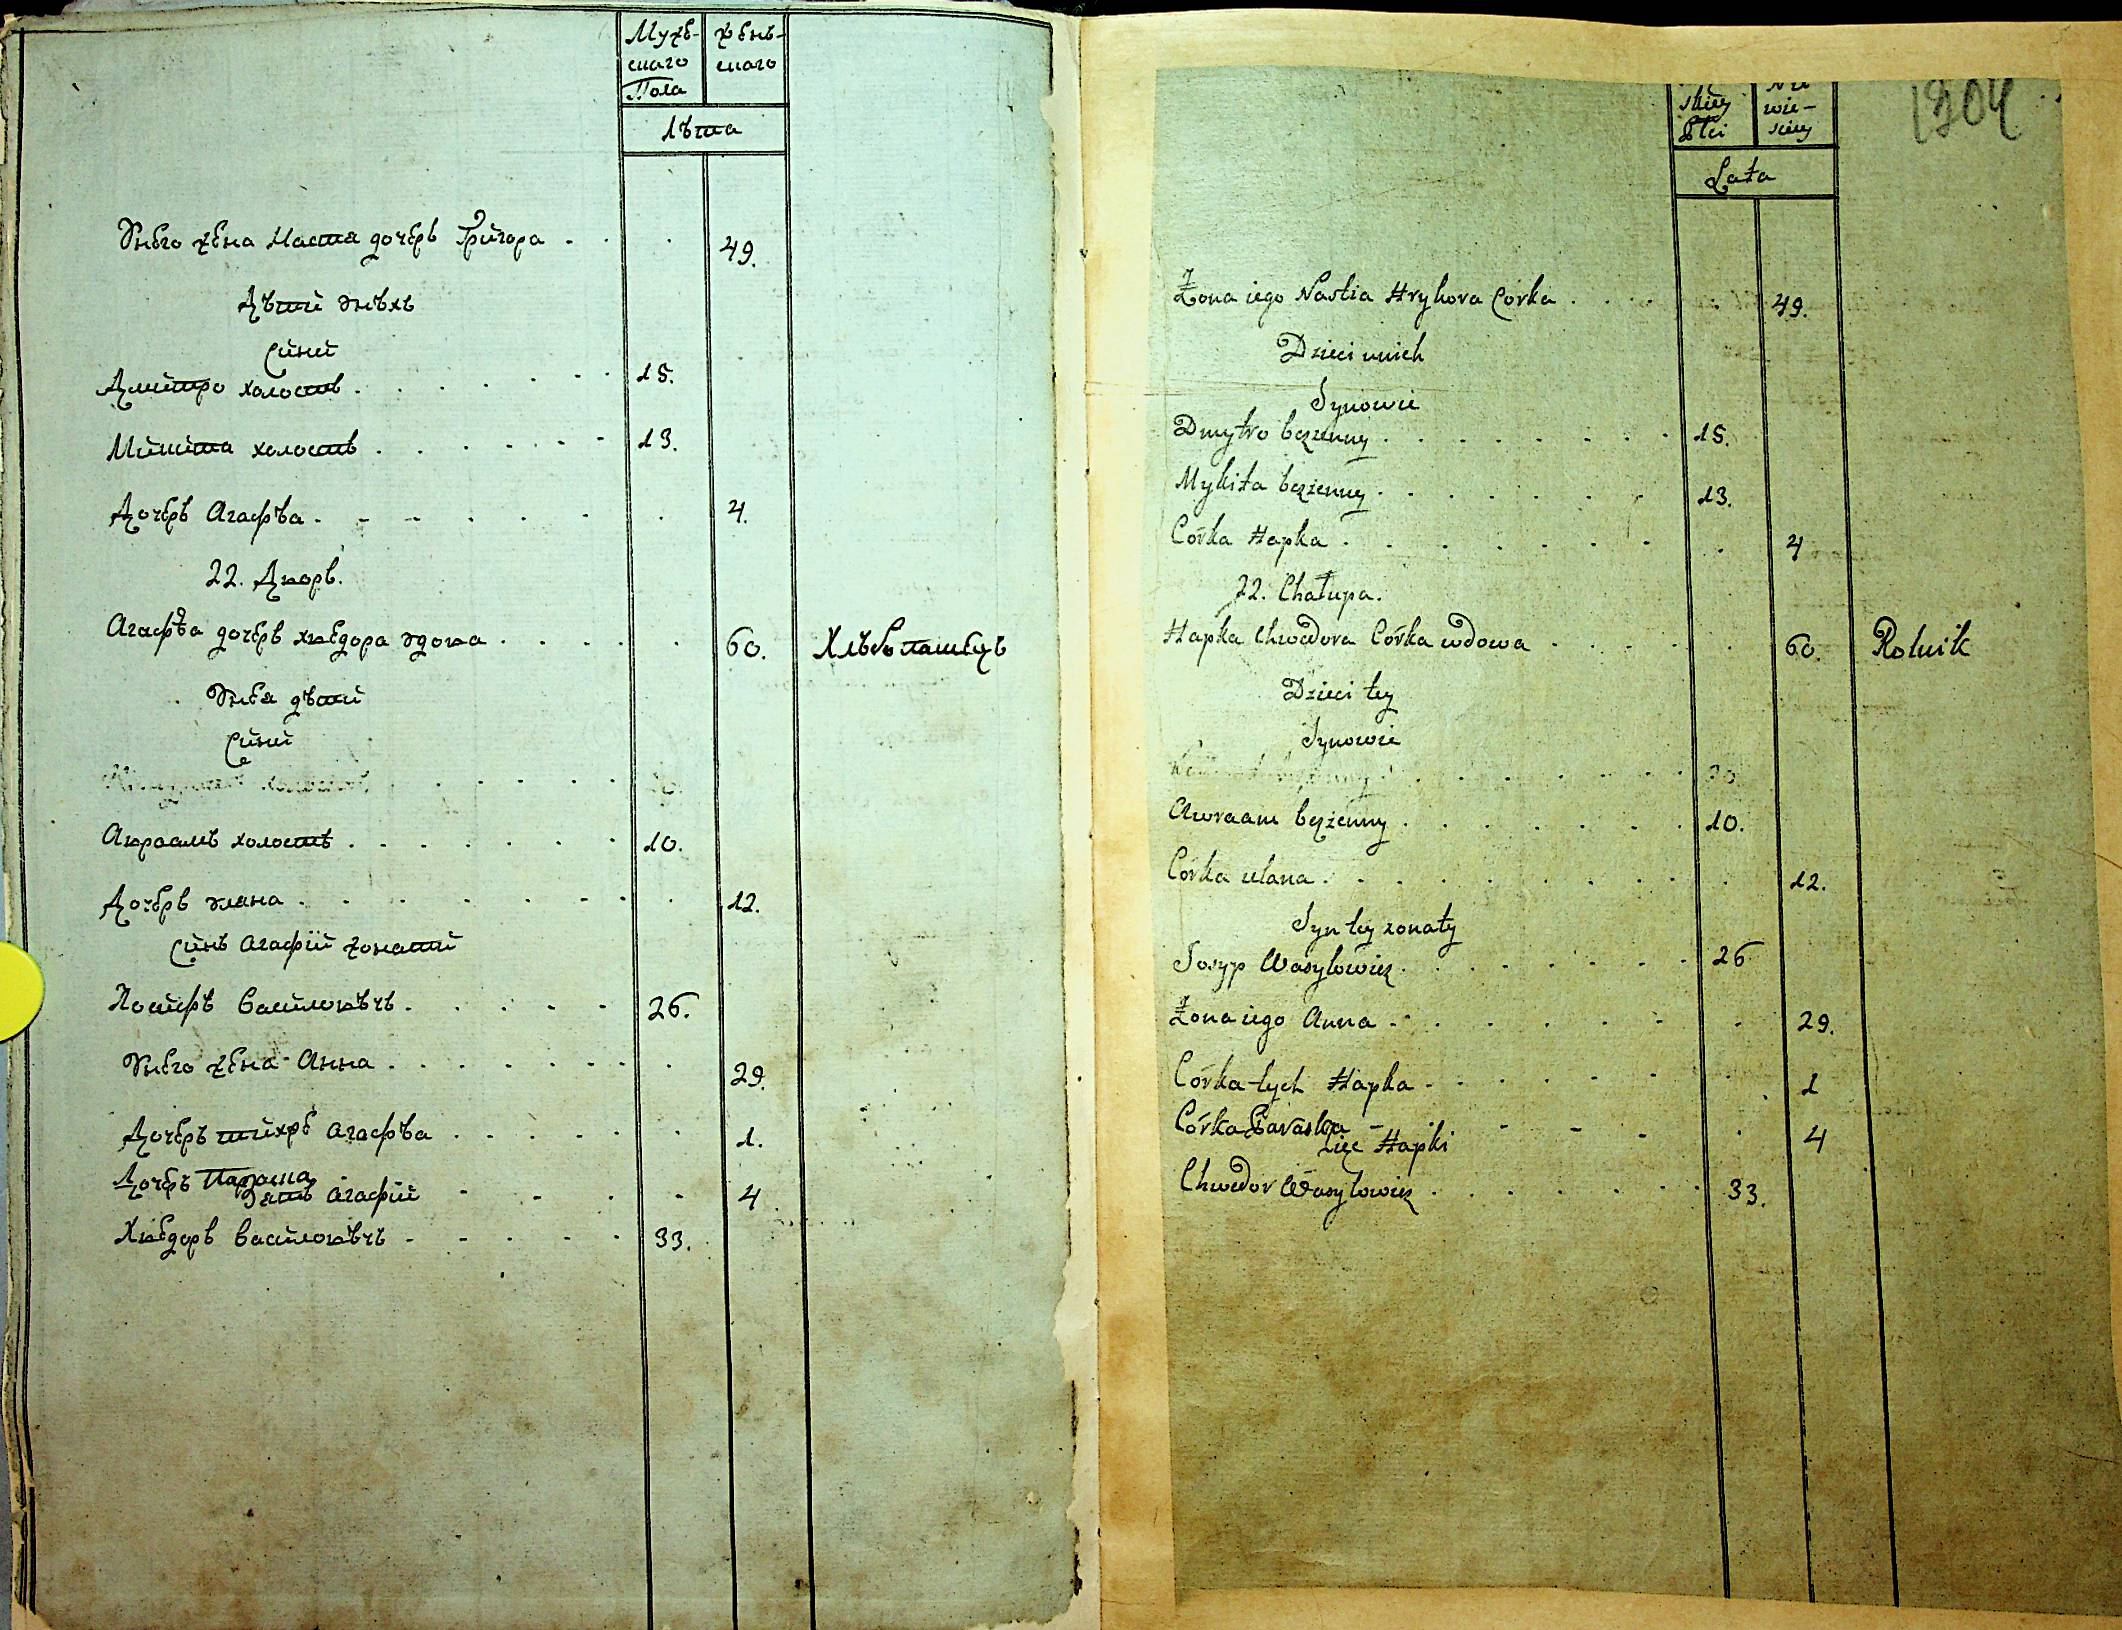 Муже-
скаго
Пола
жень-
скаго
Лѣта
Унего жена Настя дочерь Григора . . . 49.
Дѣти унѣхъ
Сини
Дмитро холостъ . . . . . . . 15.
Микита холостъ . . . . . . 13.
Дочерь Агафѣа . . . . . . . 4.
22. Дворъ.
Агафѣа дочерь хведора вдова . . . . . 60. Хлѣбопашецъ
Унея дѣти
Сини
холостъ . . . . . .
Авраамъ холостъ . . . . . . . 10.
Дочерь улана . . . . . . . . 12.
Синъ Агафии жонатий
Иосифъ Василовѣчъ . . . . . 26.
Унего жена Анна . . . . . . . . 29.
Дочерь тихже Агафѣа . . . . . . 1.
Дочерь Параска
Зять Агафии . . . . 4
Хведоръ Василовѣчъ . . . . . 33.
skiey
Płci
Nie
wie-
sciey
1204
Lata
Żona iego Nastia Hryhora Córka . . . 49.
Dzieci unich
Synowie
Dmytro bezżenny . . . . . . . . 15.
Mykita bezżenny . . . . . . . 13.
Córka Hapka . . . . . . . . . 4
22. Chałupa.
Hapka Chwedora Córka wdowa . . . . . . 60. Rolnik
Dzieci tey
Synowie
bezżenny . . . . . . . . 20
Awraam bezżenny . . . . . . . 10.
Córka ulana . . . . . . . . . 12.
Syn tey zonaty
Josyp Wasylowicz . . . . . . . . 26
Żona iego Anna . . . . . . . . 29.
Córka tych Hapka . . . . . . . 1
Córka Paraska - . . - - - . 4
Zięć Hapki
Chwedor Wasylowicz . . . . . . . 33.